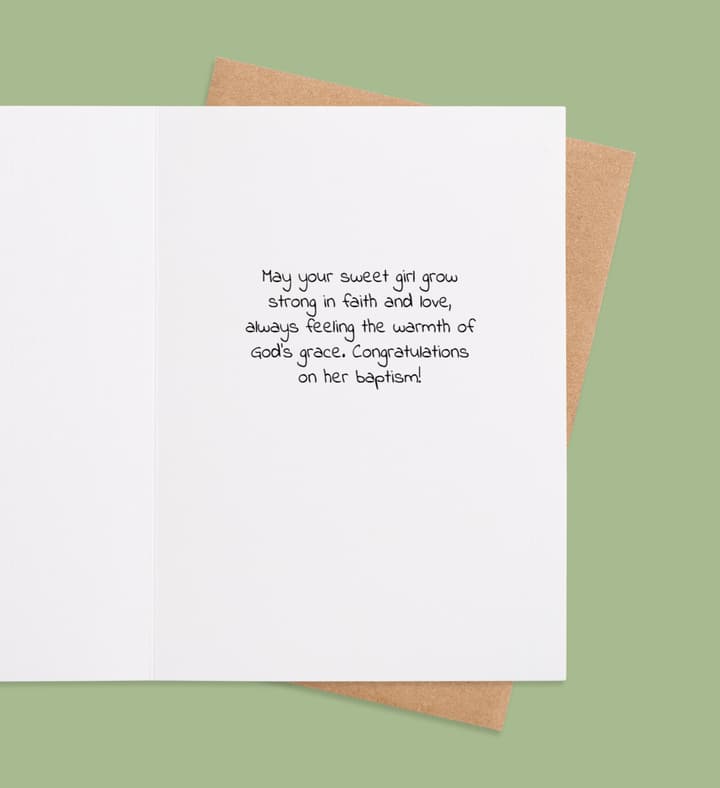 May your sweet girl grow
strong in faith and love,
always feeling the warmth of
God's grace. Congratulations
on her baptism!